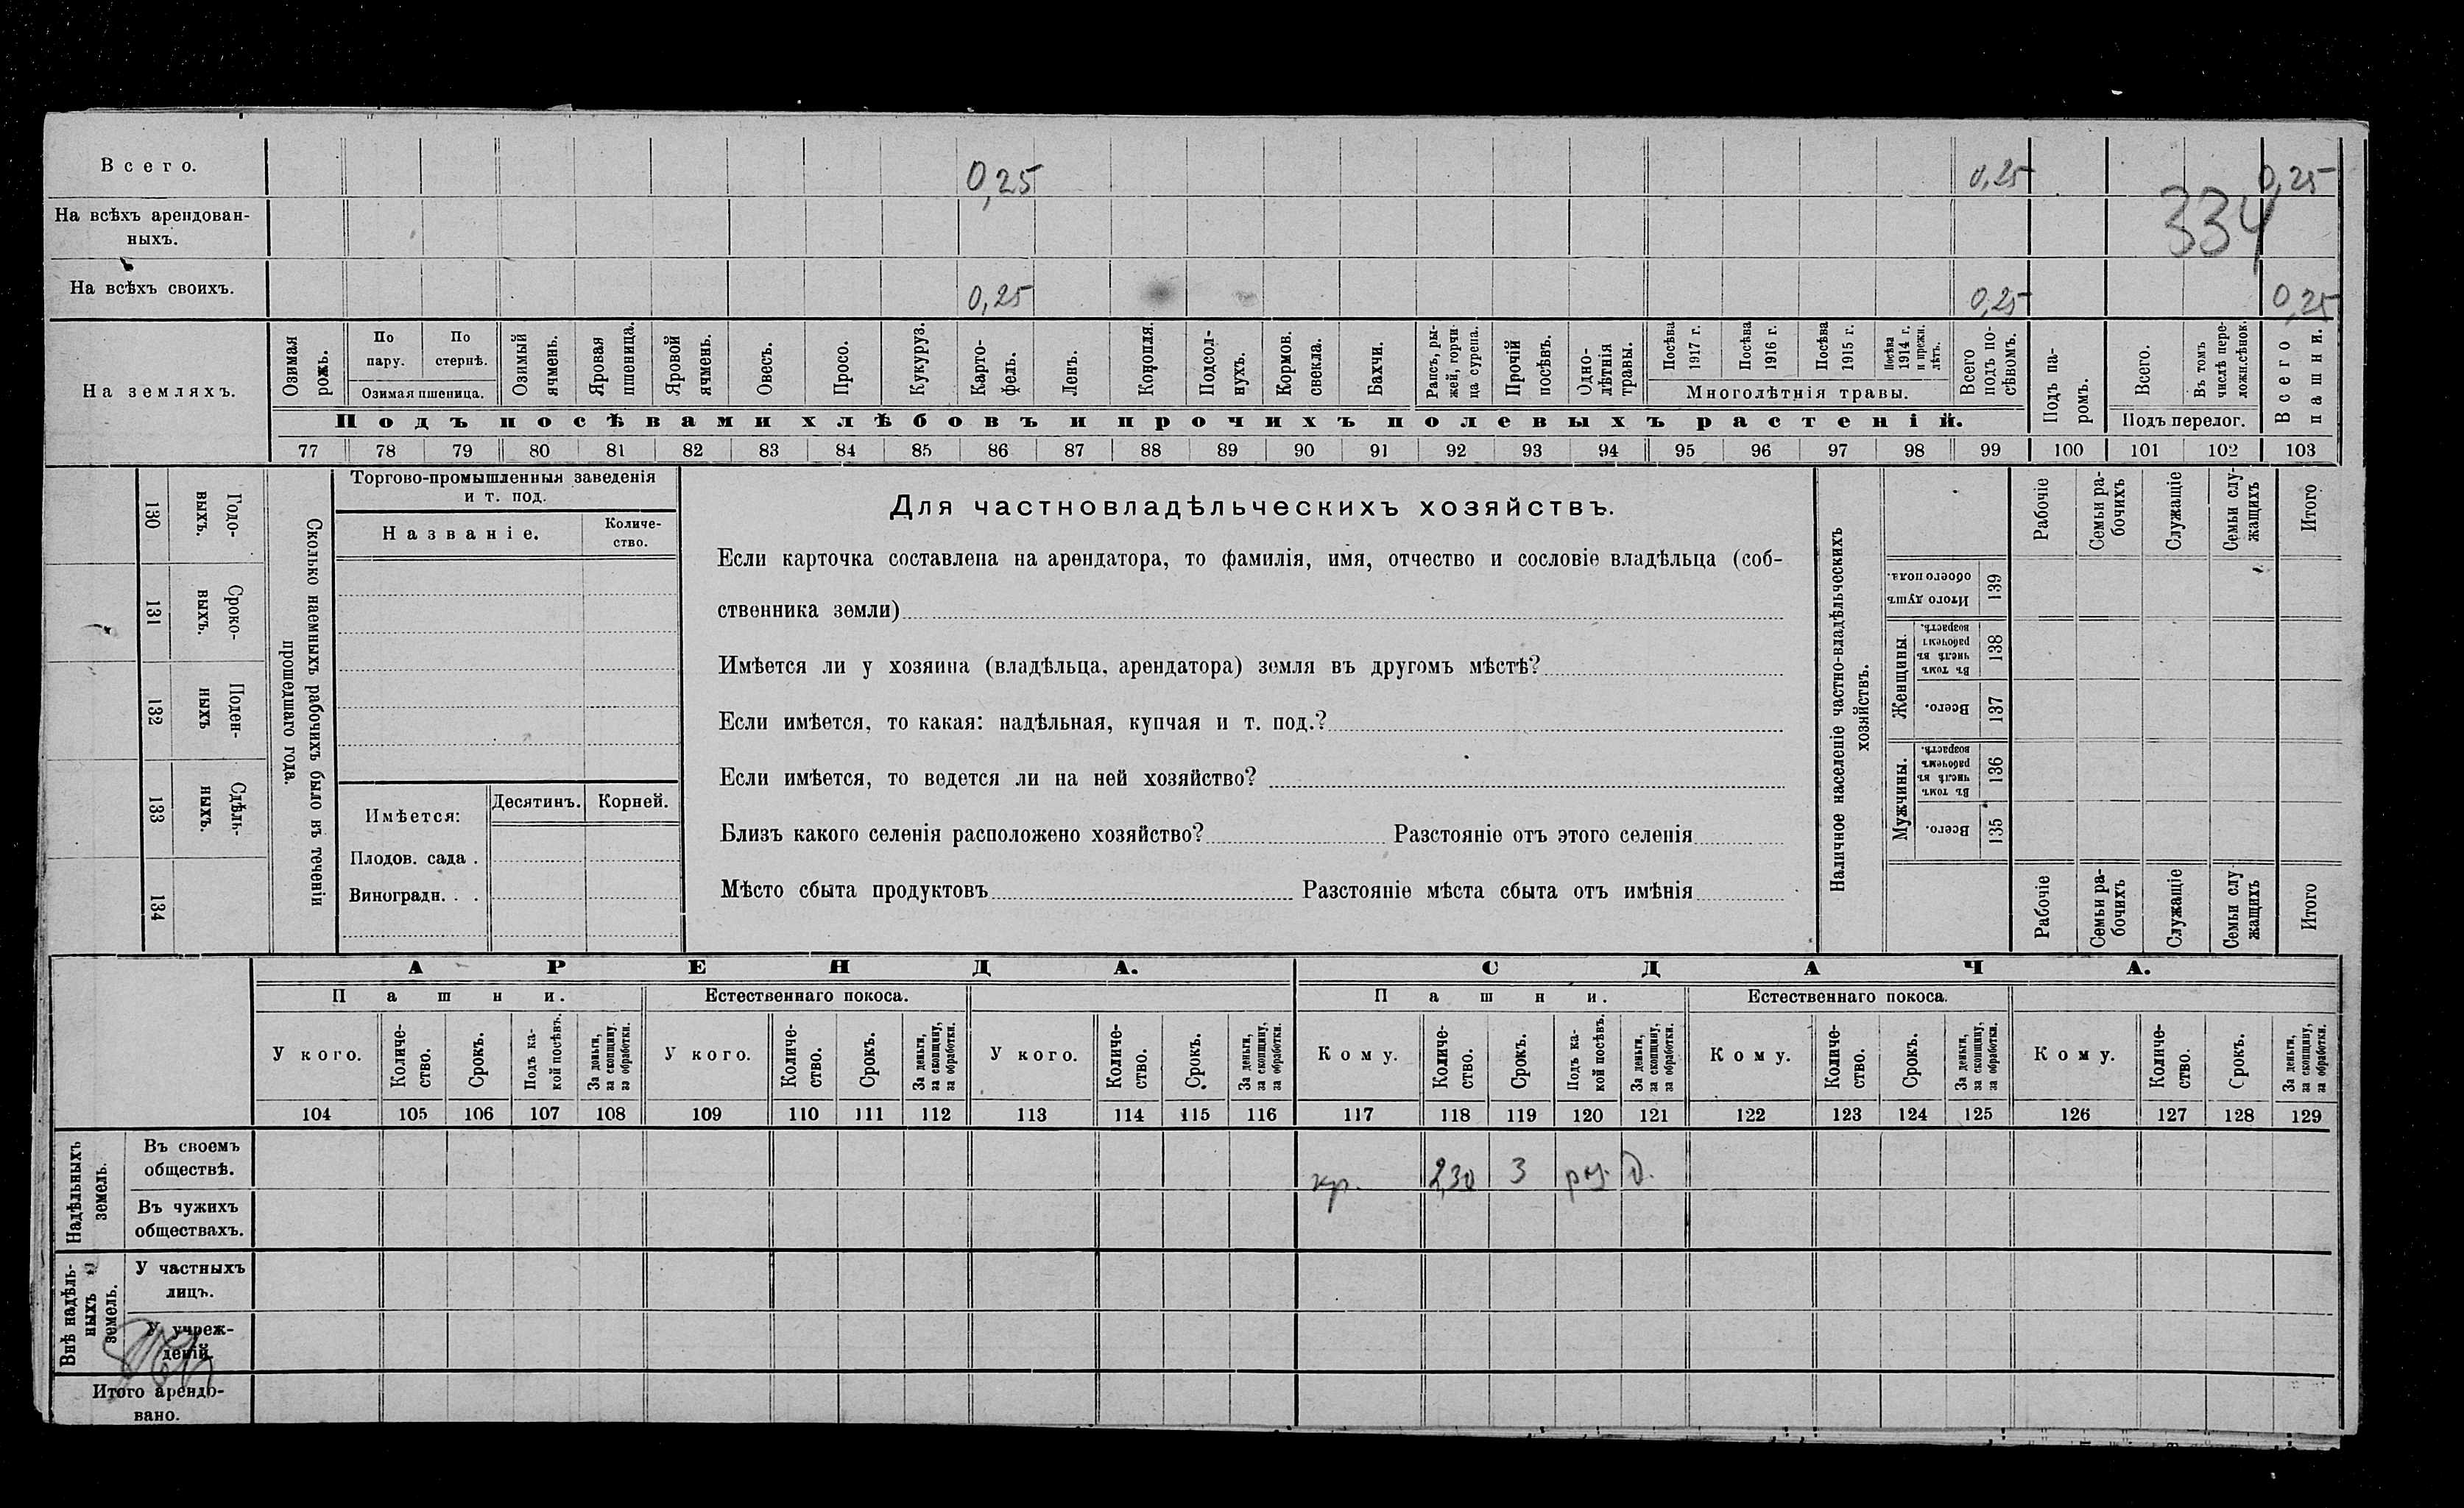 Всего. 0,25 0,25 0,25
На всѣхъ арендован-
ныхъ.
334
На всѣхъ своихъ. 0,25 0,25 0,25
На земляхъ.
Озимая рожь.
По пару.
По стернѣ.
Озимая пшеница.
Озимый ячмень.
Яровая пшеница.
Яровой ячмень.
Овесъ.
Просо.
Кукуруз.
Карто-
фель.
Ленъ.
Конопля.
Подсол-
нухъ.
Кормов.
свекла.
Бахчи.
Рапсъ, ры-
жей, горчи-
ца сурепа.
Прочій
посѣвъ.
Одно-
лѣтнія
травы.
Посѣва
1917 г.
Посѣва
1916 г.
Посѣва
1915 г.
Посѣва
1914 г.
и прежн.
лѣтъ.
Многолѣтнія травы.
Всего
подъ по-
сѣвомъ.
Подъ посѣвами хлѣбовъ и прочихъ полевыхъ растеній.
Подъ па-
ромъ.
Всего.
Въ томъ
числѣ пере-
ложн.сѣнок.
Подъ перелог.
Всего
пашни.
77 78 79 80 81 82 83 84 85 86 87 88 89 90 91 92 93 94 95 96 97 98 99 100 101 102 103
130 Годо-
выхъ.
131 Сроко-
ныхъ.
132 Поден-
ныхъ
133 Сдѣль-
ныхъ.
134
Сколько наемныхъ рабочихъ было въ теченіи
прошедшаго года.
Торгово-промышленныя заведенія
и т. под.
Названіе.
Количе-
ство.
Имѣется:
Десятинъ. Корней.
Плодов. сада .
Виноградн. . .
Для частновладѣльческихъ хозяйствъ.
Если карточка составлена на арендатора, то фамилія, имя, отчество и сословіе владѣльца (соб-
ственника земли)
Имѣется ли у хозяина (владѣльца, арендатора) земля въ другомъ мѣстѣ?
Если имѣется, то какая: надѣльная, купчая и т. под.?
Если имѣется, то ведется ли на ней хозяйство?
Близъ какого селенія расположено хозяйство? Разстояніе отъ этого селенія
Мѣсто сбыта продуктовъ Разстояніе мѣста сбыта отъ имѣнія
Наличное населеніе частно-владѣльческихъ
хозяйствъ.
Рабочіе
Семьи ра-
бочихъ
Служащіе
Семьи слу-
жащихъ
Итого
Итого душъ
обоего пола.
139
Женщины.
Въ томъ
числѣ въ
рабочемъ
возрастѣ.
138
Всего.
137
Мужчины.
Въ томъ
числѣ въ
рабочемъ
возрастѣ.
136
Всего.
135
Рабочіе
Семьи ра-
бочихъ
Служащіе
Семьи слу-
жащихъ
Итого
АРЕНДА. СДАЧА.
Пашни. Естественнаго покоса. Пашни. Естественнаго покоса.
У кого.
Количе-
ство.
Срокъ.
Подъ ка-
кой посѣвъ.
За деньги,
за скопщину,
за обработки.
У кого.
Количе-
ство.
Срокъ.
За деньги,
за скопщину,
за обработки.
У кого.
Количе-
ство.
Срокъ.
За деньги,
за скопщину,
за обработки.
Кому.
Количе-
ство.
Срокъ.
Подъ ка-
кой посѣвъ.
За деньги,
за скопщину,
за обработки.
Кому.
Количе-
ство.
Срокъ.
За деньги,
за скопщину,
за обработки.
Кому.
Количе-
ство.
Срокъ.
За деньги,
за скопщину,
за обработки.
104 105 106 107 108 109 110 111 112 113 114 115 116 117 118 119 120 121 122 123 124 125 126 127 128 129
Надѣльныхъ
земель.
Въ своемъ
обществѣ.
кр. 2,30 3 д.
Въ чужихъ
обществахъ.
Внѣ надѣль-
ныхъ
земель.
У частныхъ
лицъ.
У учреж-
деній.
Итого арендо-
вано.